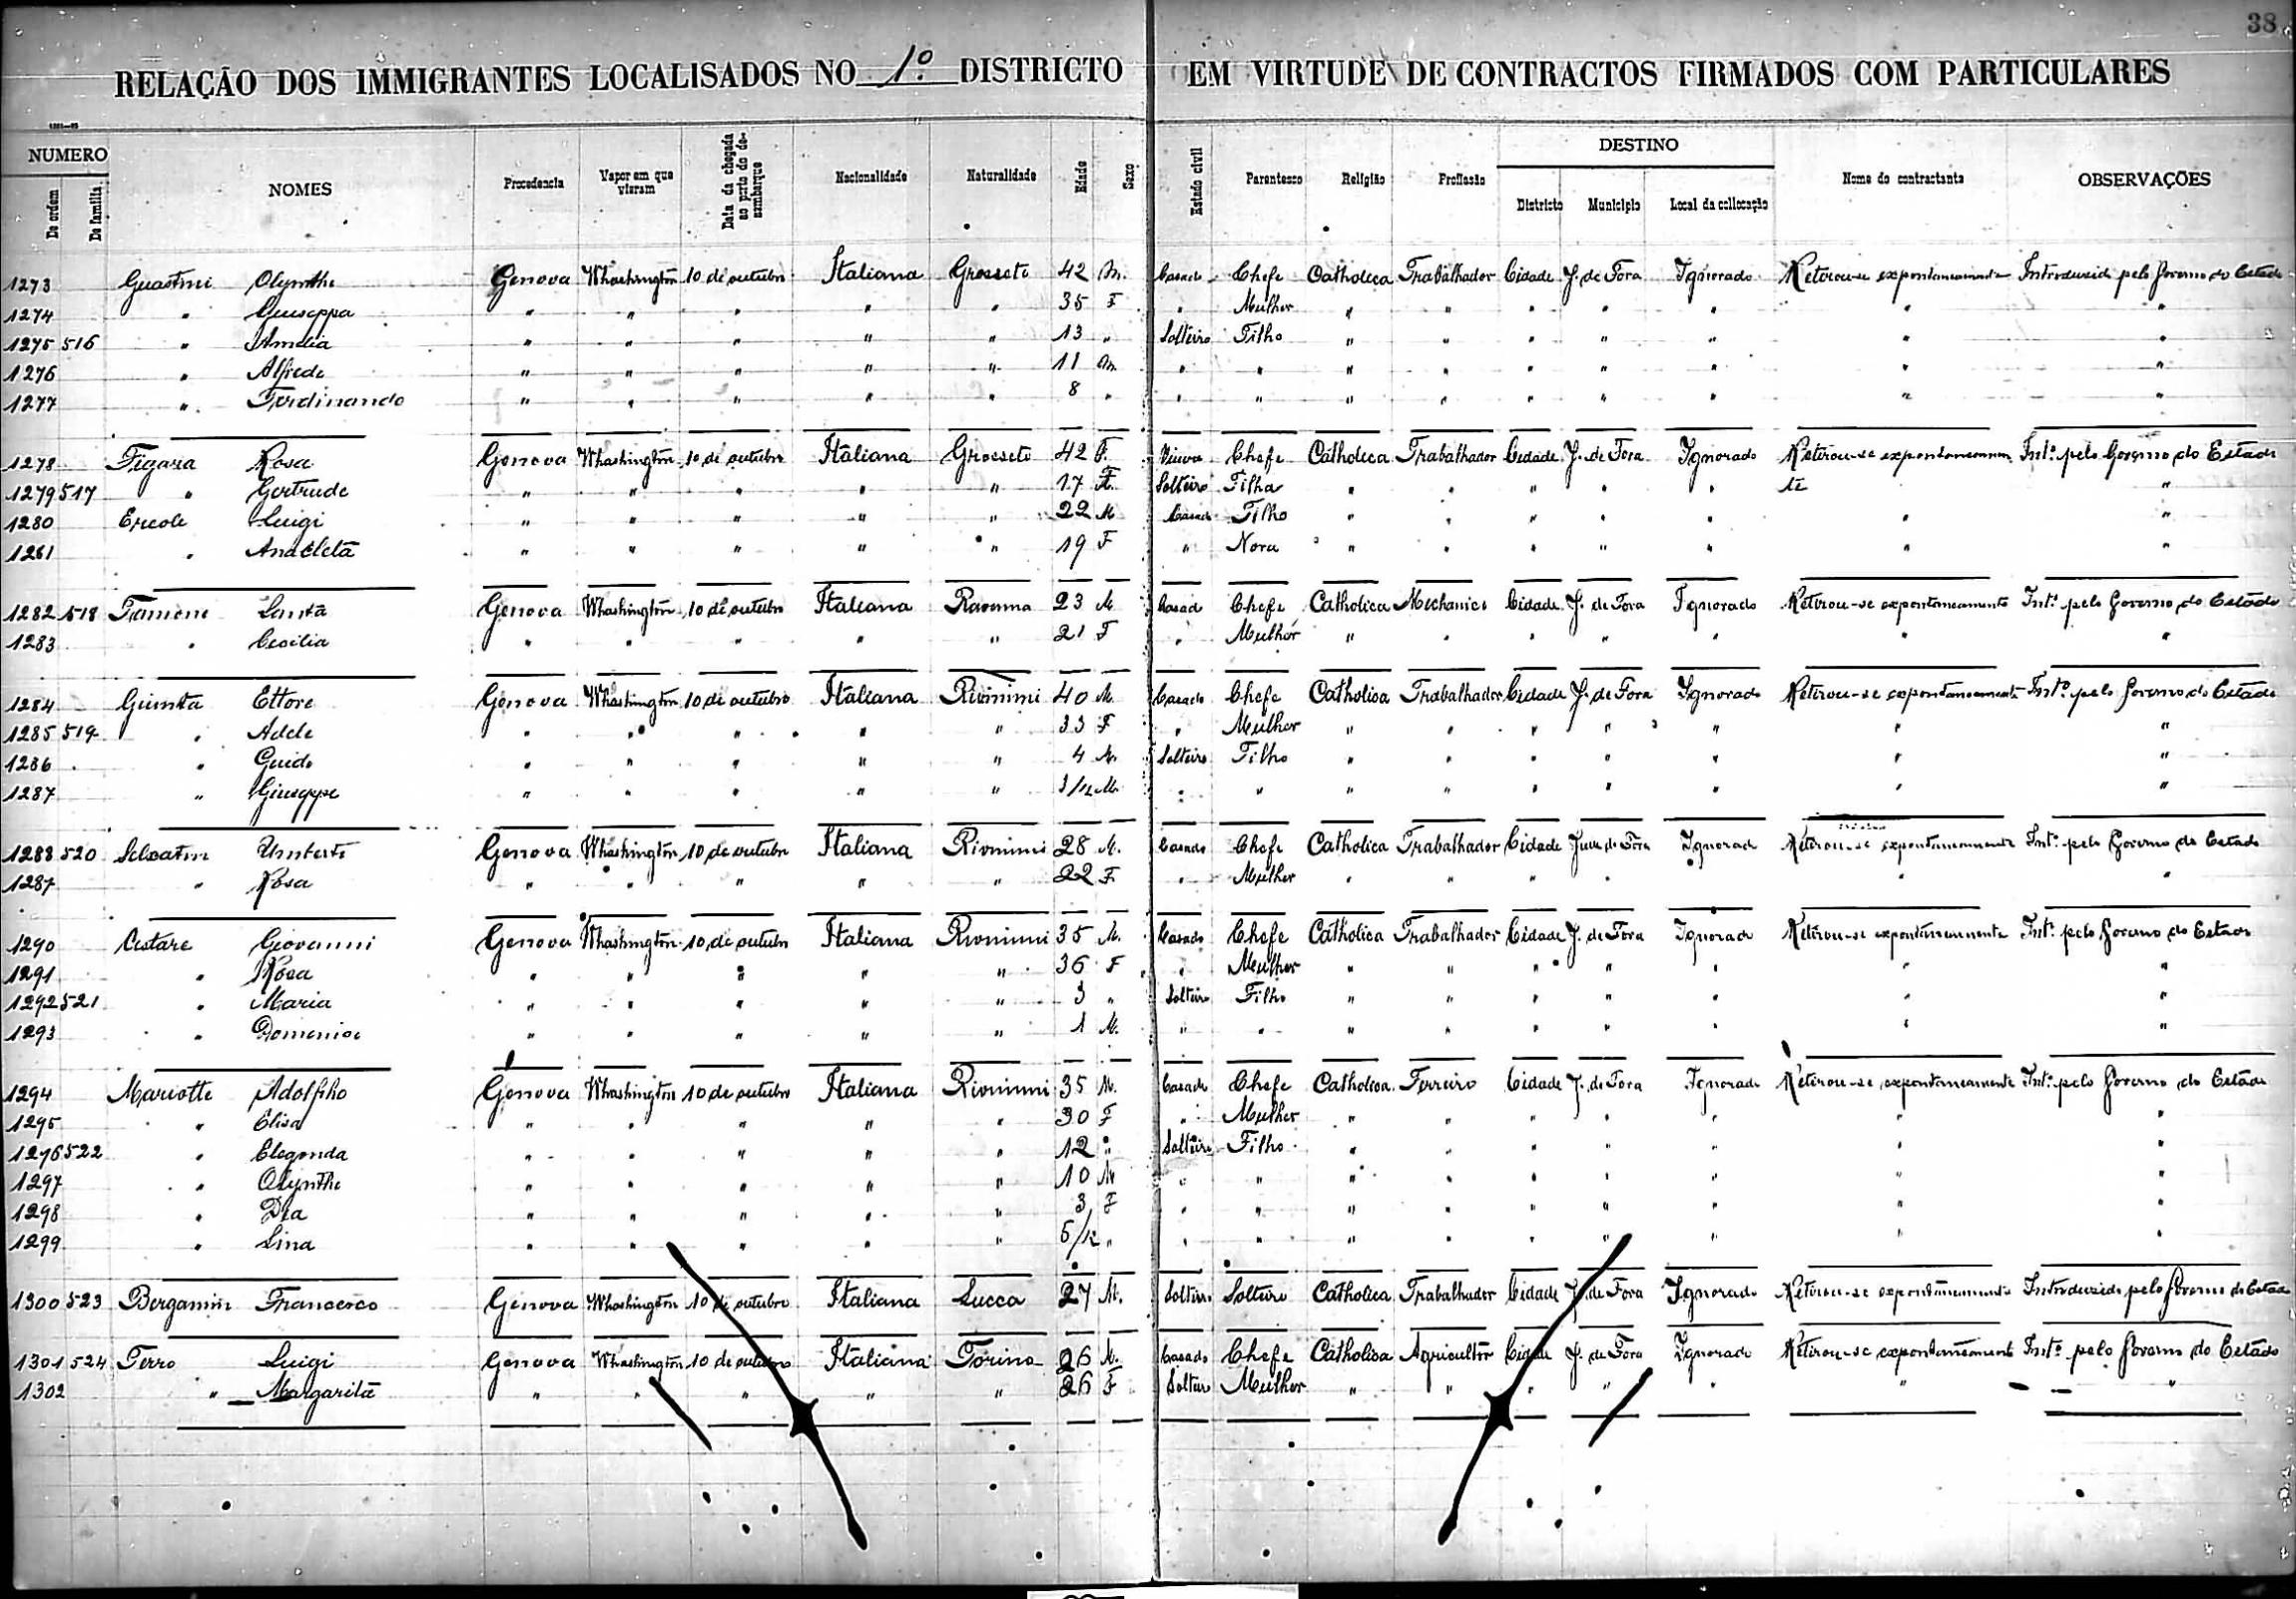 38
RELAÇÃO DOS IMMIGRANTES LOCALISADOS NO 1º DISTRICTO EM VIRTUDE DE CONTRACTOS FIRMADOS COM PARTICULARES
NUMERO De ordem De familia NOMES Procedencia Vapor em que vieram Data da chegada ao porto do desembarque Nacionalidade Naturalidade Edade Sexo Estado civil Parentesco Religião Profissão DESTINO Districto Municipio Local da collocação Nome do contractante OBSERVAÇÕES
1273 Guastini Olynthe Genova Whashington 10 de outubro Italiana Grosseto 42 M. Casado Chefe Catholica Trabalhador Cidade J. de Fora Ignorado Retirou-se expontaneamente Introduzido pelo Governo do Estado
1274 " Guiseppa " " " " " 35 F " Mulher " " " " " " "
1275 516 " Amelia " " " " " 13 " Solteiro Filho " " " " " " "
1276 " Alfredo " " " " " 11 M. " " " " " " " " "
1277 " Ferdinando " " " " " 8 " " " " " " " " " "
1278 Figara Rosa Genova Whashington 10 de outubro Italiana Grosseto 42 F. Viuva Chefe Catholica Trabalhador Cidade J. de Fora Ignorado Retirou-se expontaneamen Int.º pelo Governo do Estado
1279 517 " Gertrude " " " " " 17 F. Solteiro Filha " " " " " te "
1280 Ercole Luigi " " " " " 22 M Casado Filho " " " " " " "
1261 " Anacleta " " " " " 19 F " Nora " " " " " " "
1282 518 Tamone Santa Genova Whashington 10 de outubro Italiana Ravenna 23 M Casad Chefe Catholica Mechanico Cidade J. de Fora Ignorado Retirou-se expontaneamente Int.º pelo Governo do Estado
1283 " Cecilia " " " " " 21 F " Mulher " " " " " " "
1284 Giunta Ettore Genova Whashington 10 de outubro Italiana Rionimi 40 M Casado Chefe Catholica Trabalhador Cidade J. de Fora Ignorado Retirou-se expontaneamente Int.º pelo Governo do Estado
1285 519 " Adele " " " " " 33 F " Mulher " " " " " " "
1286 " Guido " " " " " 4 M. Solteiro Filho " " " " " " "
1287 " Giuseppe " " " " " 3/12 M. " " " " " " " " "
1288 520 Umberto Genova Whashington 10 de outubro Italiana Rionimi 28 M. Casado Chefe Catholica Trabalhador Cidade Juiz de Fóra Ignorad Retirou-se expontaneamente Int.º pelo Governo do Estado
1287 " Rosa " " " " " 22 F. " Mulher " " " " " "
1290 Cestare Giovanni Genova Whashington 10 de outubro Italiana Rionimi 35 M. Casado Chefe Catholica Trabalhador Cidade J. de Fora Ignorad Retirou-se expontaneamente Int.º pelo Governo do Estado
1291 " Rosa " " " " " 36 F " Mulher " " " " " " "
1292 521 " Maria " " " " " 3 " Solteiro Filho " " " " " " "
1293 " Domenico " " " " " 1 M. " " " " " " " " "
1294 Mariotte Adolfiho Genova Whashington 10 de outubro Italiana Rionimi 35 M. Casado Chefe Catholica Ferreiro Cidade J. de Fora Ignorado Retirou-se expontaneamente Int.º pelo Governo do Estado
1295 " Elisa " " " " " 30 F " Mulher " " " " " " "
1296 522 " Elegonda " " " " " 12 " Solteiro Filho " " " " " " "
1297 " Olynthe " " " " " 10 M " " " " " " " " "
1298 " Dea " " " " " 3 F " " " " " " " " "
1299 " Lina " " " " " 5/12 " " " " " " " " " "
1300 523 Bergamin Francesco Genova Whashington 10 de outubro Italiana Lucca 27 M. Solteiro Solteiro Catholica Trabalhador Cidade J. de Fora Ignorado Retirou-se expontaneamente Introduzido pelo Governo do Estado
1301 524 Ferro Luigi Genova Whashington 10 de outubro Italiana Torino 26 M. Casado Chefe Catholica Agricultor Cidade J. de Fora Ignorado Retirou-se expontaneamente Int.º pelo Governo do Estado
1302 " Margarita " " " " " 26 F Solteiro Mulher " " " " " " "